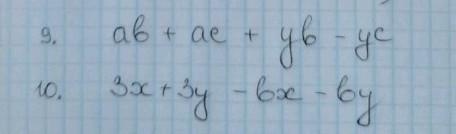 9. ab + ac + yb - yc
10. 3x + 3y - bx - by